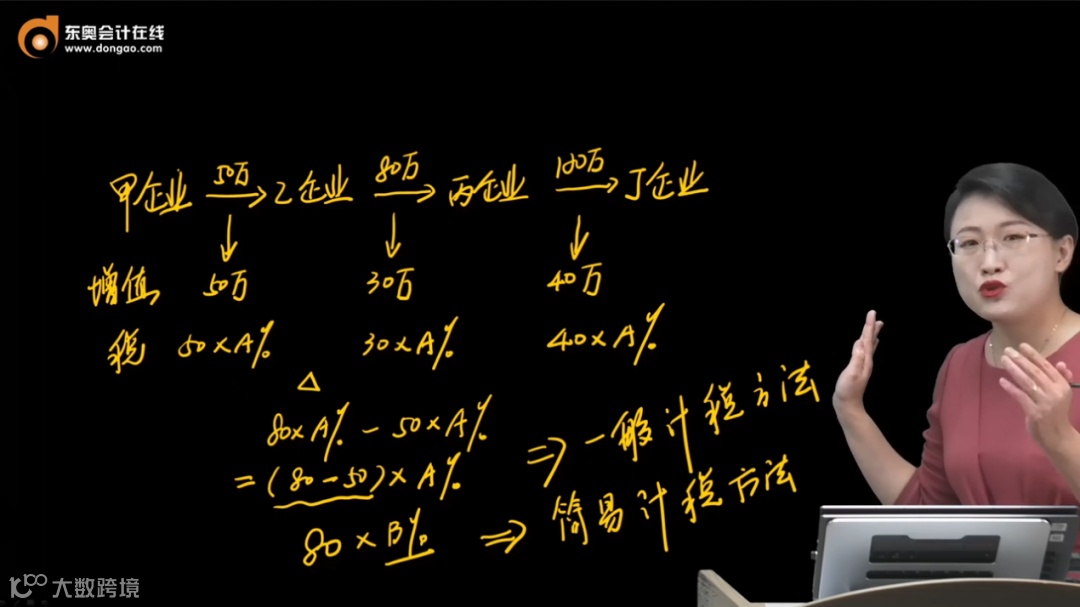 东奥会计在线
www.dongao.com
50万 80万 120万
甲企业 → 乙企业 → 丙企业 → 丁企业
↓ ↓ ↓
增值 50万 30万 40万
税 50×A% 30×A% 40×A%
△
80×A% - 50×A% ⇒ 一般计税方法
= (80-50)×A%
80×B% ⇒ 简易计税方法
大数跨境